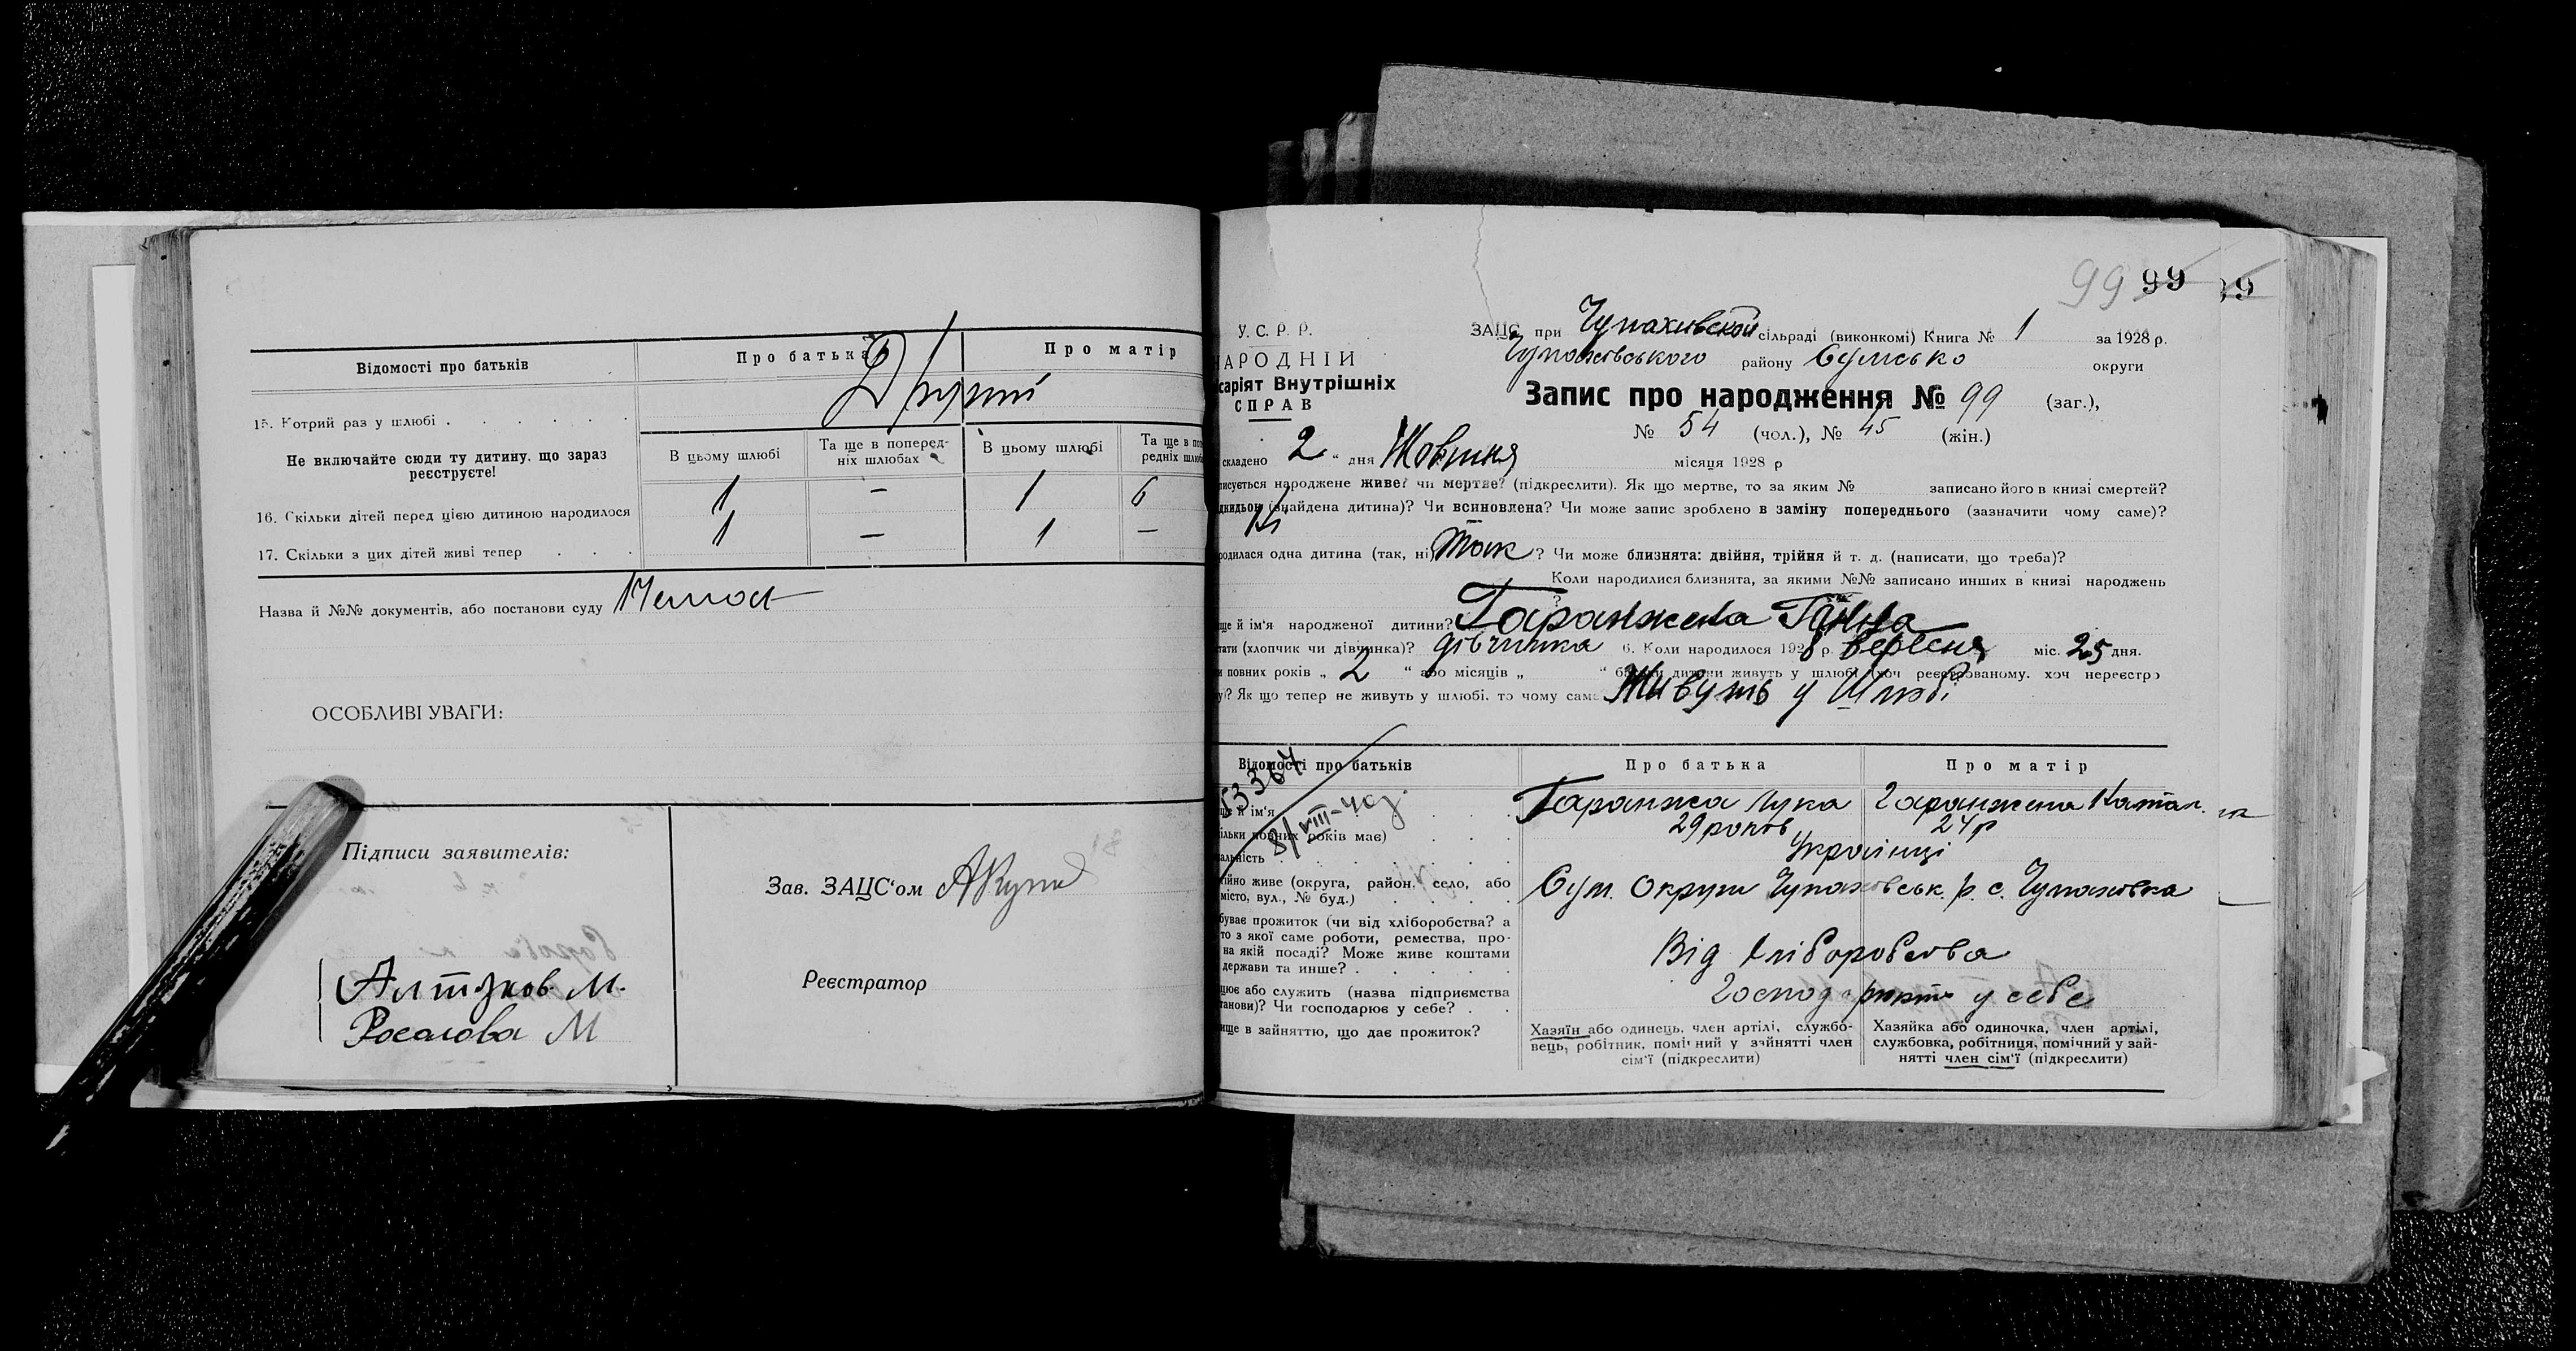 Відомості про батьків
Про батька
Про матір
15. Котрий раз у шлюбі
Другий
Не включайте сюди ту дитину, що зараз реєструєте!
В цьому шлюбі
Та ще в поперед-
ніх шлюбах
В цьому шлюбі
Та ще в по
редніх шлюб
16. Скільки дітей перед цією дитиною народилося
1 — 1 6
17. Скільки з цих дітей живі тепер
1 — 1 —
Назва й №№ документів, або постанови суду
ОСОБЛИВІ УВАГИ:
Підписи заявителів:
Росалова М
Зав. ЗАЦС'ом
Реєстратор
99 99
У. С. Р. Р.
АРОДНІЙ
саріят Внутрішніх
СПРАВ
ЗАЦС при Чупахивской сільраді (виконкомі) Книга № 1 за 1928 р.
Чупахівського району Сумсько округи
Запис про народження № 99 (заг.),
№ 54 (чол.), № 45 (жін.)
складено 2 " дня Жовтня місяця 1928 р
писується народжене живе? чи мертве? (підкреслити). Як що мертве, то за яким № записано його в книзі смертей?
дкидьок (знайдена дитина)? Чи всиновлена? Чи може запис зроблено в заміну попереднього (зазначити чому саме)?
родилася одна дитина (так, ні) Так ? Чи може близнята: двійня, трійня й т. д. (написати, що треба)?
Коли народилися близнята, за якими №№ записано инших в книзі народжень
?
ще й ім'я народженої дитини? Гаранжена Ганна
тати (хлопчик чи дівчинка)? дівчинка 6. Коли народилося 1928 р. вересня міс. 25 дня.
и повних років „ 2 " або місяців „ " батьки дитини живуть у шлюбі (хоч реєстрованому, хоч нереєстро
у)? Як що тепер не живуть у шлюбі, то чому саме Живуть у Шлюбі
Відомості про батьків
Про батька
Про матір
53364
8/VIII-40г.
ще й ім'я
Гаранжа Лука
Гаранжена Катал
ільки повних років має)
29 років
24 р
альність
Українці
ійно живе (округа, район, село, або
місто, вул., № буд.)
Сум. Округи Чупахівськ. р. с. Чупахівка
буває прожиток (чи від хліборобства? а
то з якої саме роботи, ремества, про-
на якій посаді? Може живе коштами
держави та инше?
Від хліборобства
цює або служить (назва підприємства
танови)? Чи господарює у себе?
Господарюють у себе
ище в зайняттю, що дає прожиток?
Хазяїн або одинець, член артілі, службо-
вець, робітник, помічний у зайнятті член
сім'ї (підкреслити)
Хазяйка або одиночка, член артілі,
службовка, робітниця, помічний у зай-
нятті член сім'ї (підкреслити)